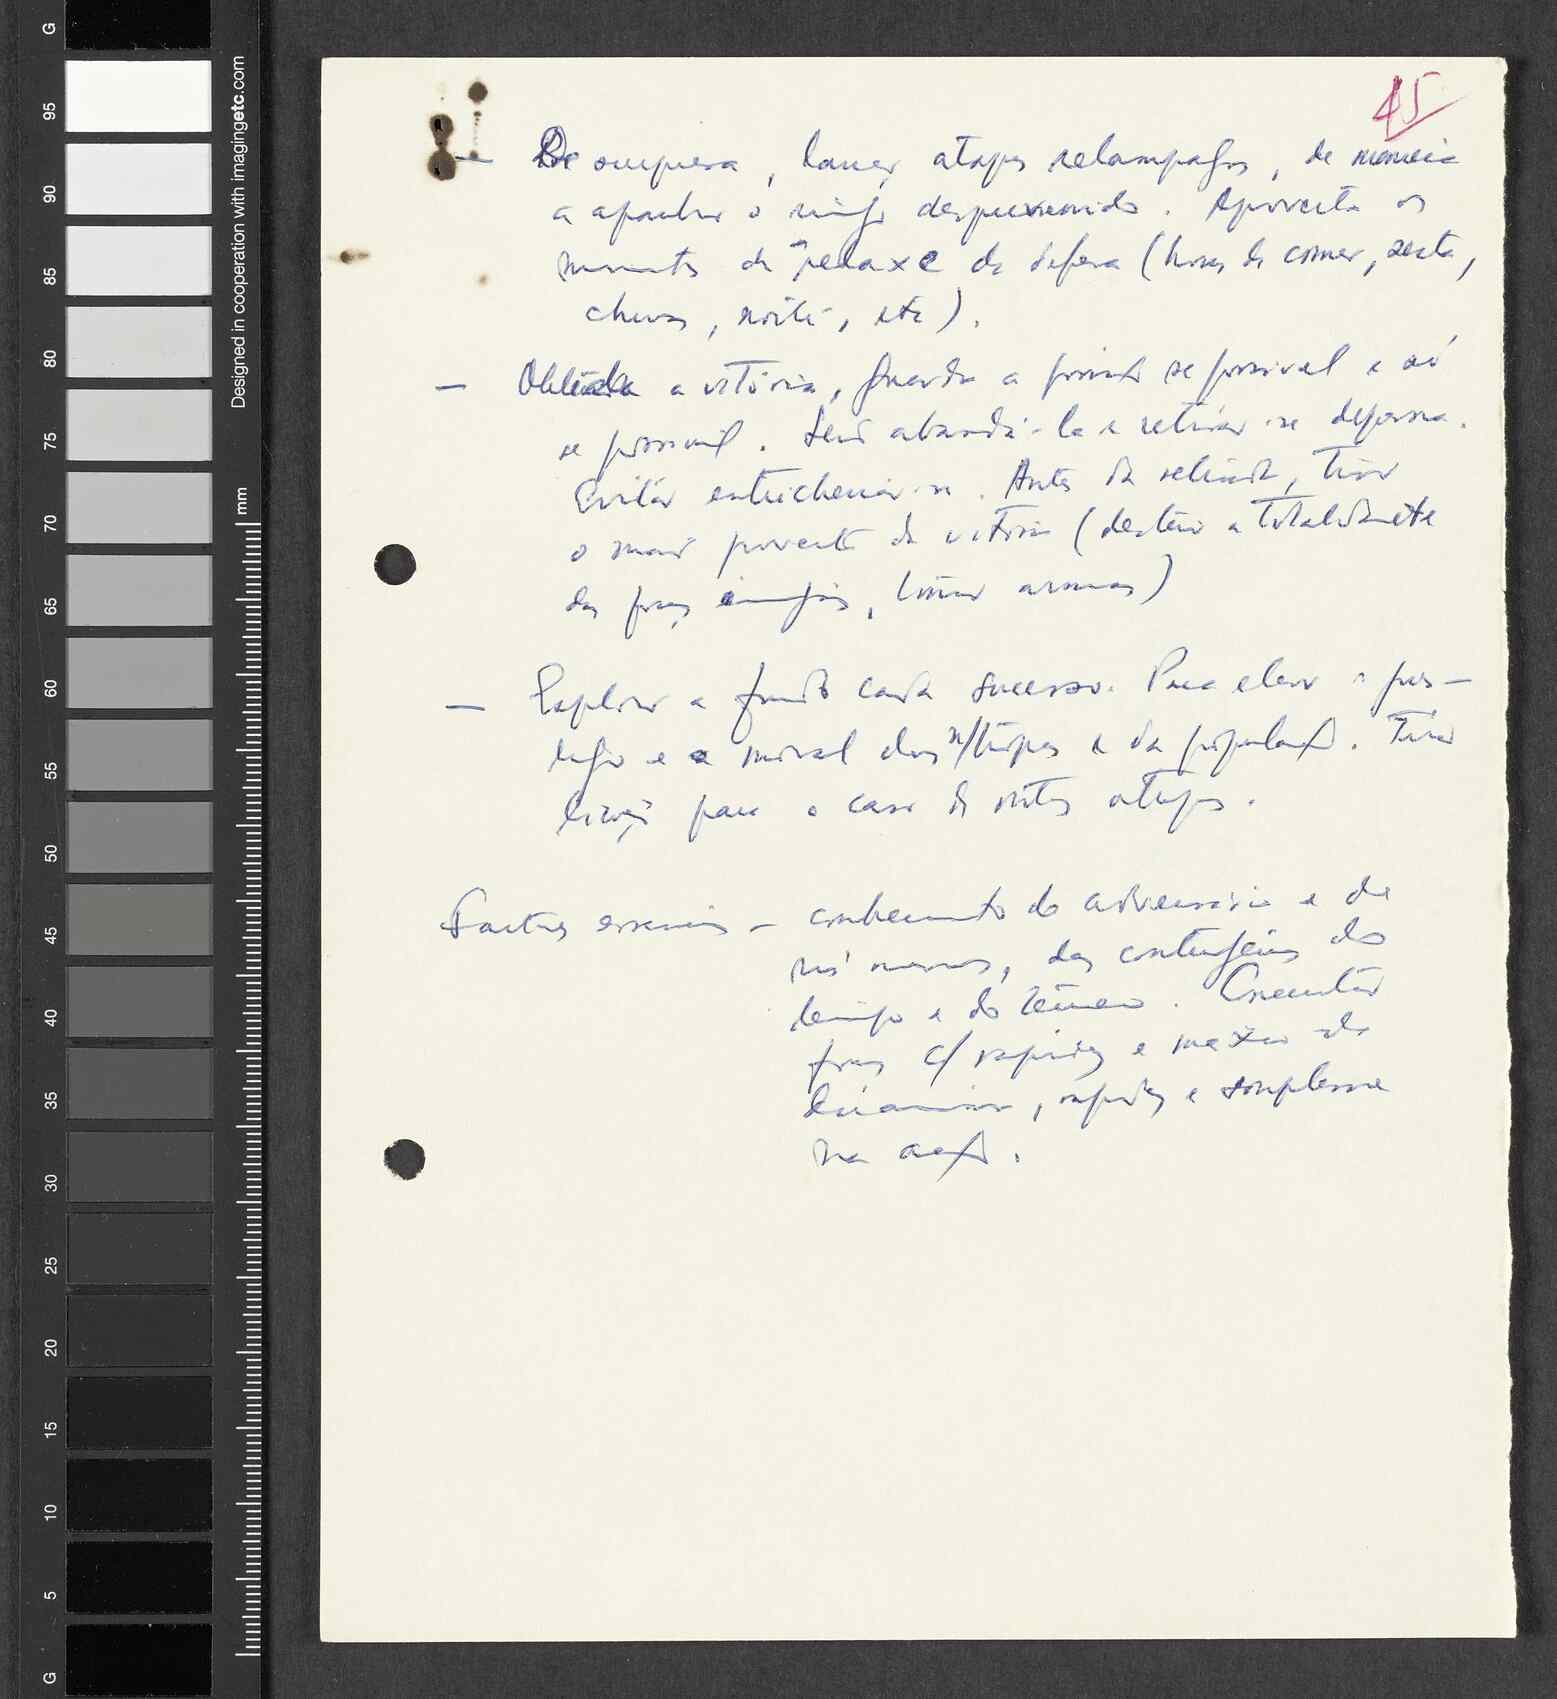 45
— De surpresa, lançar ataques relampagos, de maneira
a apanhar o inimigo desprevenido. Aproveitar os
momentos de relaxe da defesa (horas de comer, sesta,
chuvas, noite, etc).
— Obtida a vitória, guardar a posição se possivel e só
se possivel. Senão abandoná-la e retirar-se depressa.
Evitar entricheirar-se. Antes da retirada, tirar
o maior proveito da vitória (destruir a totalidade
das forças inimigas, tomar armas)
— Explorar a fundo cada sucesso. Para elevar o pres-
tígio e a moral das n/ tropas e da população. Tirar
lições para o caso de outros ataques.
Factores essenciais — conhecimento do adversário e de
nós mesmos, das contingências do
tempo e do terreno. Concentrar
forças c/ rapidez e
dinamismo, rapidez e souplesse
na acção.
G
95
90
85
80
75
70
65
60
55
50
45
40
35
30
25
20
15
10
5
G
Designed in cooperation with imagingetc.com
mm